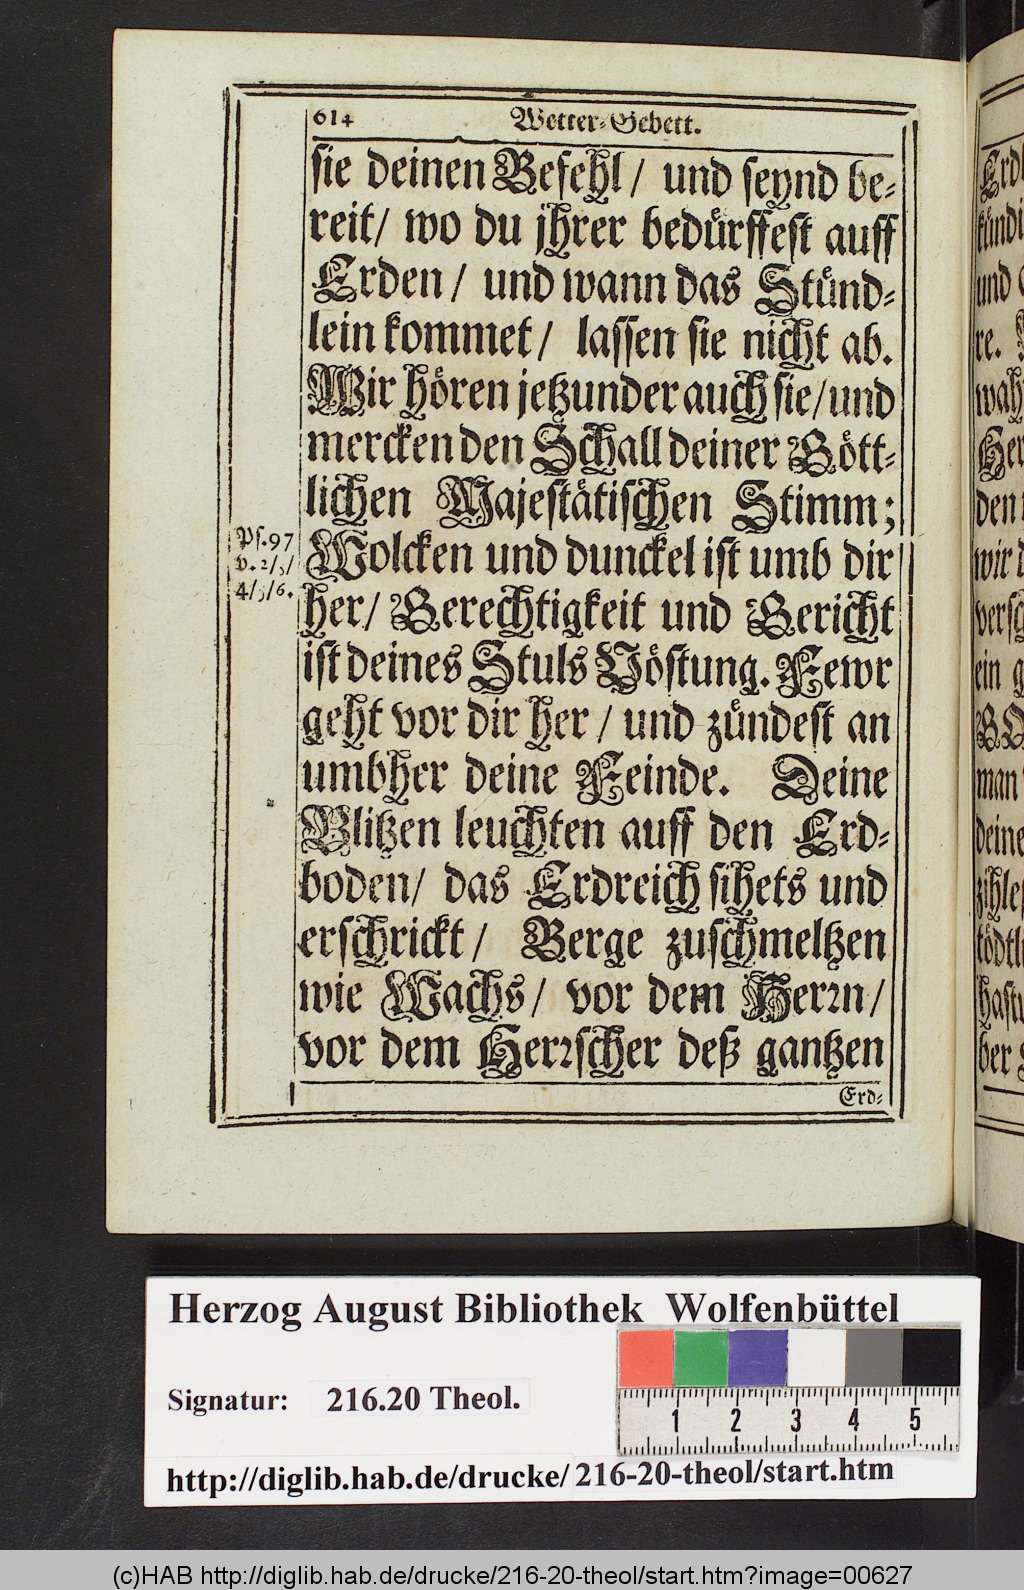 614 Wetter-Gebett.
sie deinen Befehl / und seynd be-
reit / wo du jhrer bedürffest auff
Erden / und wann das Stünd-
lein kommet / lassen sie nicht ab.
Wir hören jetzunder auch sie / und
mercken den Schall deiner Gött-
lichen Majestätischen Stimm;
Ps. 97
v. 2/3/
4/5/6.
Wolcken und dunckel ist umb dir
her / Gerechtigkeit und Gericht
ist deines Stuls Vöstung. Fewr
geht vor dir her / und zündest an
umbher deine Feinde. Deine
Blitzen leuchten auff den Erd-
boden / das Erdreich sihets und
erschrickt / Berge zuschmeltzen
wie Wachs / vor dem Herrn /
vor dem Herrscher deß gantzen
Erd-
Erd
kündi
und
re.
wah
Her
den
wir d
versc
ein g
GO
man
deine
zihle
tödtl
hast
ber
Herzog August Bibliothek Wolfenbüttel
Signatur: 216.20 Theol.
1 2 3 4 5
http://diglib.hab.de/drucke/216-20-theol/start.htm
(c)HAB http://diglib.hab.de/drucke/216-20-theol/start.htm?image=00627